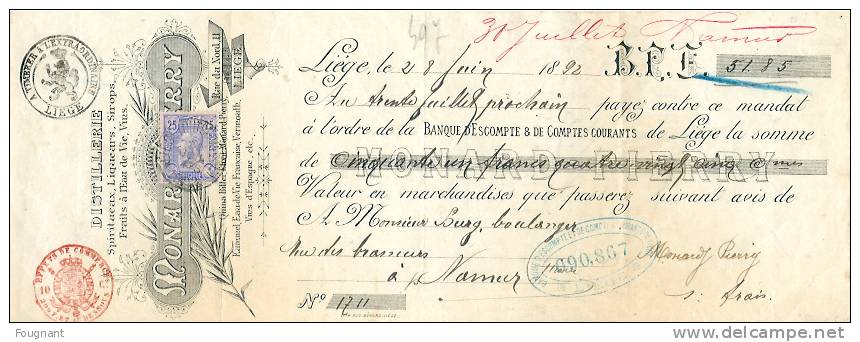 497
30 Juillet Namur
A TIMBRER À L'EXTRAORDINAIRE
LIÉGE
DISTILLERIE
Spiritueux, Liqueurs, Sirops,
Fruits à l'Eau de Vie, Vins.
MONARD PIERRY
Rue du Nord, 11
LIÉGE
Kummel, Eau-de-Vie Française, Vermouth,
Vins d'Espagne etc.
25
EFFETS DE COMMERCE
10 C
Liège, le 28 Juin 1892 B.P.F. 51.85
Au trente juillet prochain payez contre ce mandat
à l'ordre de la BANQUE D'ESCOMPTE & DE COMPTES COURANTS de Liège la somme
de Cinquante un francs quatre vingt cinq cmes
MONARD PIERRY
Valeur en marchandises que passerez suivant avis de
A Monsieur Burg, boulanger
rue des brasseurs
à Namur
690.867
Monard Pierry
s. frais.
No 1711
Fougnant
delcampe.net